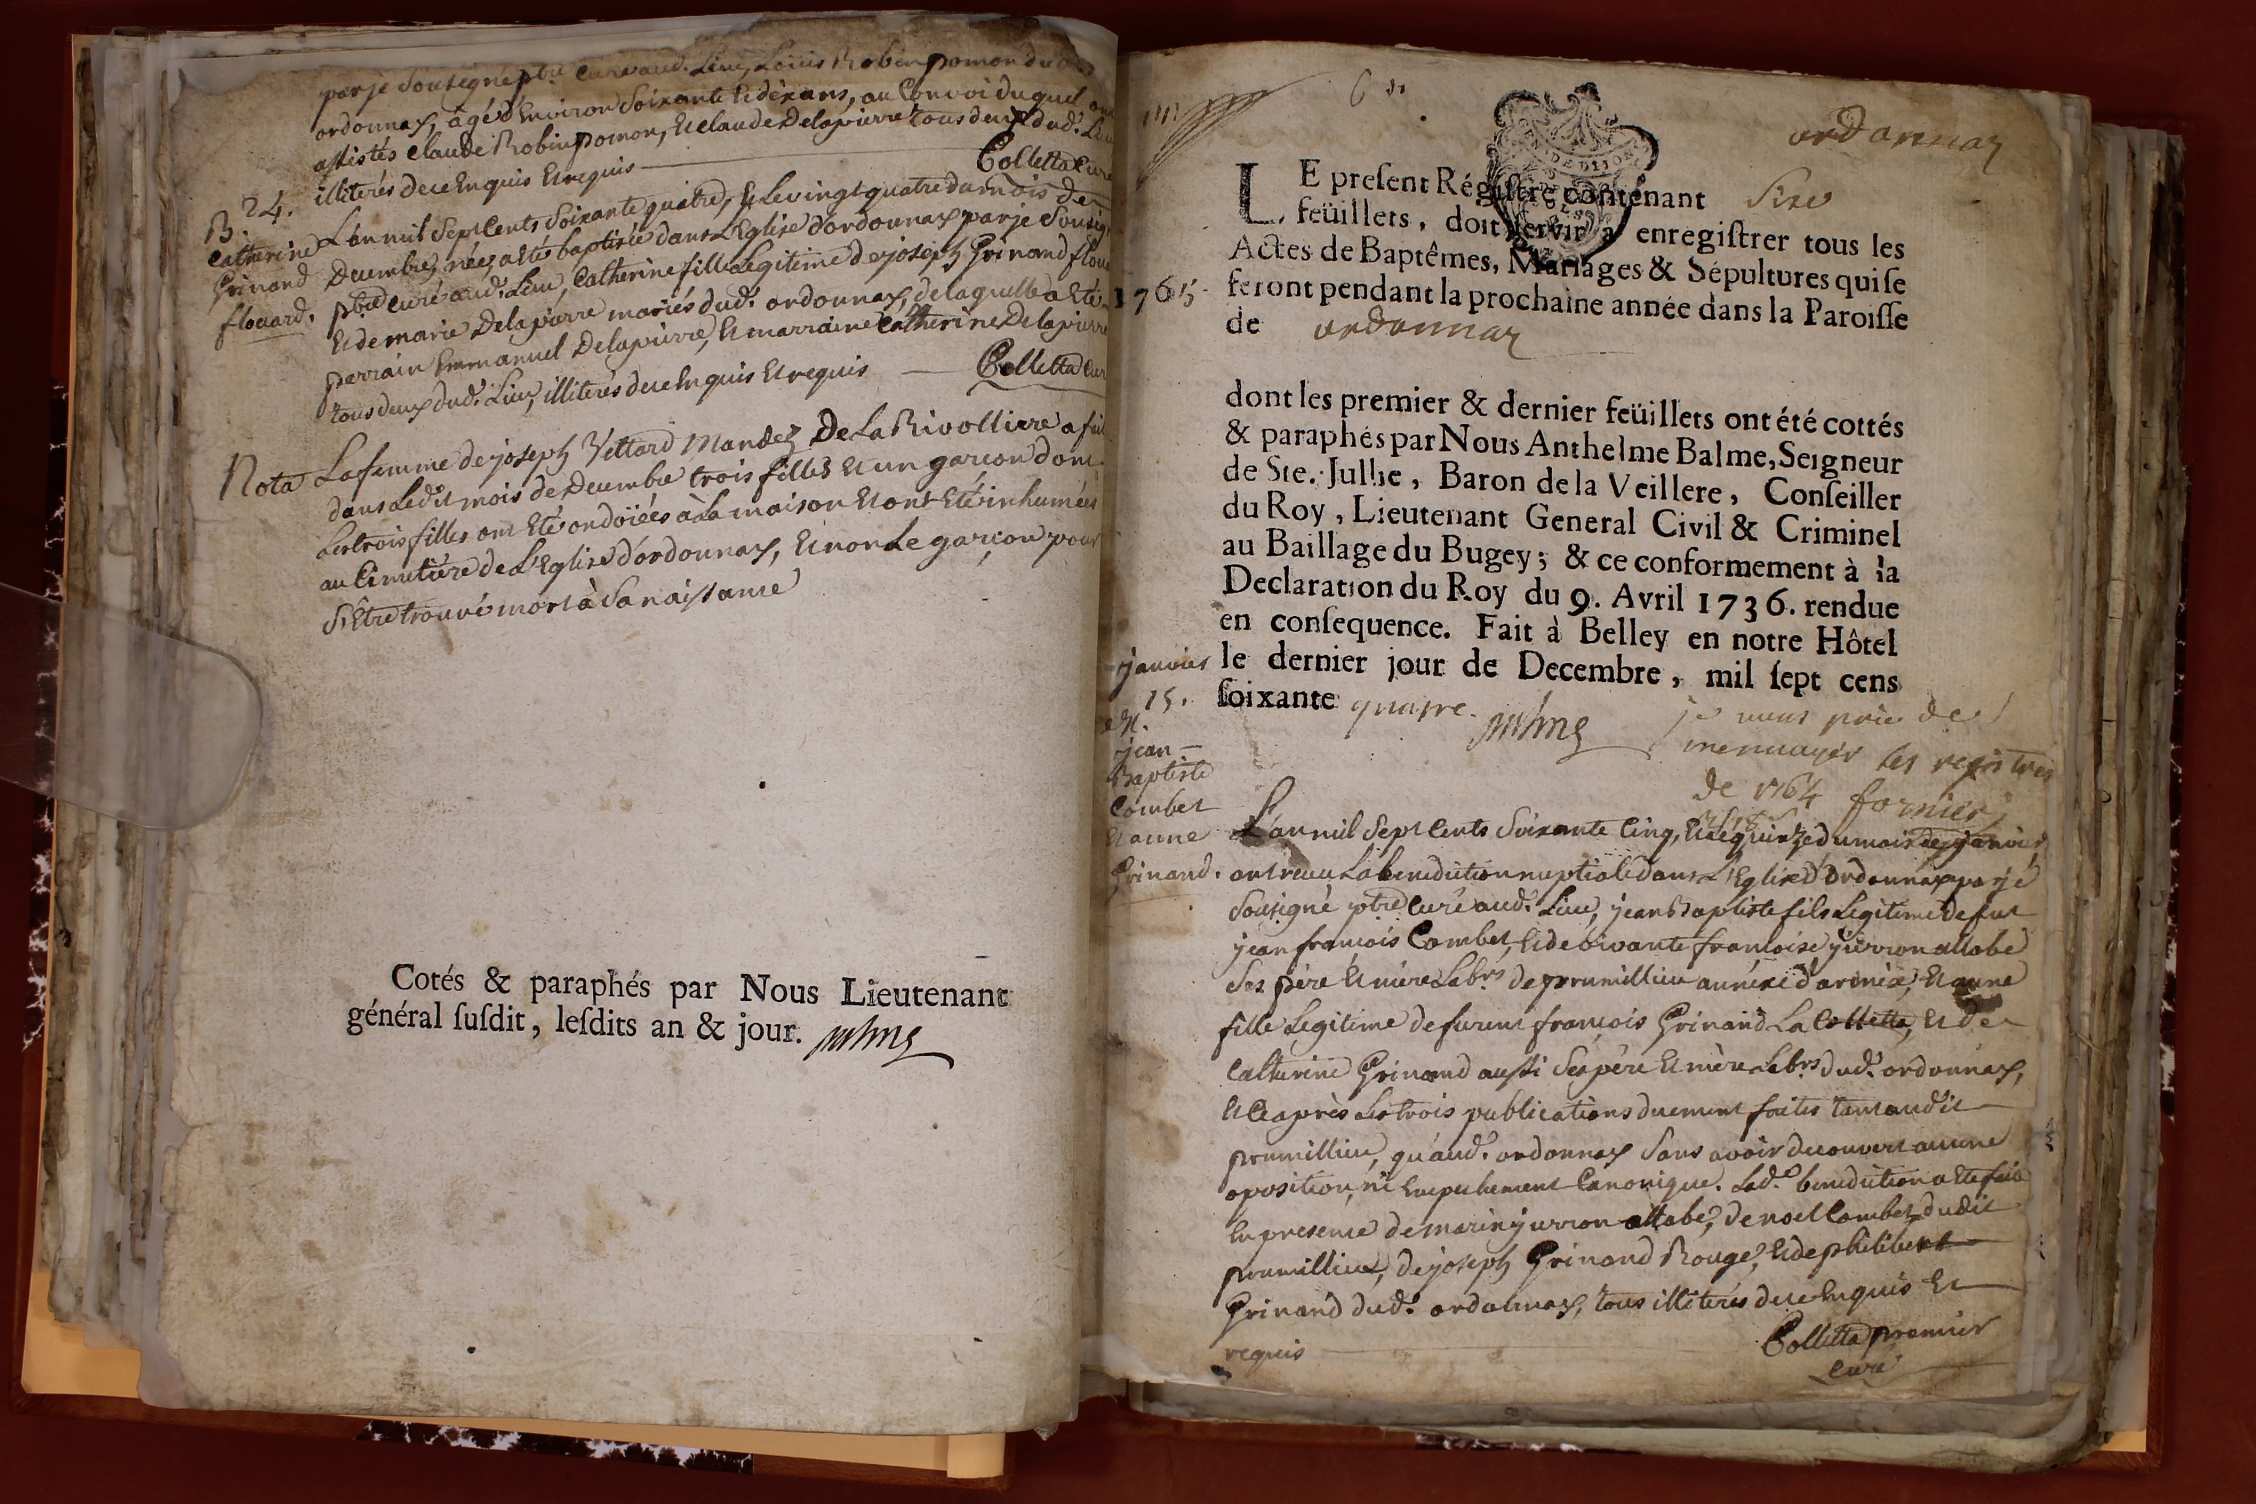 par je Sousigné pbre Curé aud.t Lieu, Loüis Robin pomon du
ordonnax, agé d'Environ Soixante Et dix ans, au Convoi duquel ont
assistés Claude Robin pomon, Et Claude Delapierre tous deux dud.t Lieu
illiterés de ce Enquis Et requis
Colletta Curé
B. 24.
Catherine
Grinand
flouard.
L'an mil Sept Cents Soixante quatre, Et Le vingt quatre du mois de
Decembre, née, a Eté baptisée dans L'Eglise d'ordonnax par je Sousig
pbre curé aud.t Lieu, Catherine fille Legitime de joseph Grinand floua
Et de marie Delapierre mariés dud.t ordonnax, de laquelle a Eté
parrain Emmanuel Delapierre, Et marraine Catherine Delapierre
tous deux dud.t Lieu, illiterés de ce Enquis Et requis
Colletta Cur
Nota
La femme de joseph Vettard Mandez De La Rivollirre a fai
dans Ledit mois de Decembre trois filles Et un garçon dont
Les trois filles ont Eté ondoïées à La maison Et ont Eté inhumées
au Cimetière de L'Eglise d'ordonnax, Et non Le garçon pour
S'Etre trouvé mort à Sa naissance
Cotés & paraphés par Nous Lieutenant
général susdit, lesdits an & jour.
ordonnax
LE present Régistre contenant Six
feüillets, doit servir à enregistrer tous les
Actes de Baptêmes, Mariages & Sépultures qui se
1765.
feront pendant la prochaine année dans la Paroisse
de ordonnax
dont les premier & dernier feüillets ont été cottés
& paraphés par Nous Anthelme Balme, Seigneur
de Ste. Jullie, Baron de la Veillere, Conseiller
du Roy, Lieutenant General Civil & Criminel
au Baillage du Bugey; & ce conformement à la
Declaration du Roy du 9. Avril 1736. rendue
en consequence. Fait à Belley en notre Hôtel
le dernier jour de Decembre, mil sept cens
soixante quatre.
je vous prie de
m'envoayer les registres
de 1764 fornier
janvier
15.
M.
jean
Baptiste
Combet
Et anne
Grinand.
L'an mil Sept Cents Soixante Cinq, Et Le quinze du mois de janvier
ont reçu La benediction nuptiale dans L'Eglise D'ordonnax par je
Sousigné pbre Curé aud.t Lieu, jean Baptiste fils Legitime de fut
jean françois Combet, Et de vivante françoise jurron allobe
Ses père Et mère Lab.rs de prumillieu annéxe d'armix, Et anne
fille Legitime de furent françois Grinand La Colletta, Et de
Catherine Grinand aussi Ses père Et mère Lab.rs dud.t ordonnax,
Et Ce après Les trois publications duement faites tant audit
prumillieu, qu'aud.t ordonnax Sans avoir decouvert aucune
oposition, ni Empechement Canonique. Lad.e benediction a Eté faite
En presence de marin jurron allobe, de noel Combet dudit
prumillieu, de joseph Grinand Rouge, Et de philibert
Grinand dud.t ordonnax, tous illiterés de ce Enquis Et
requis
Colletta premier
Curé